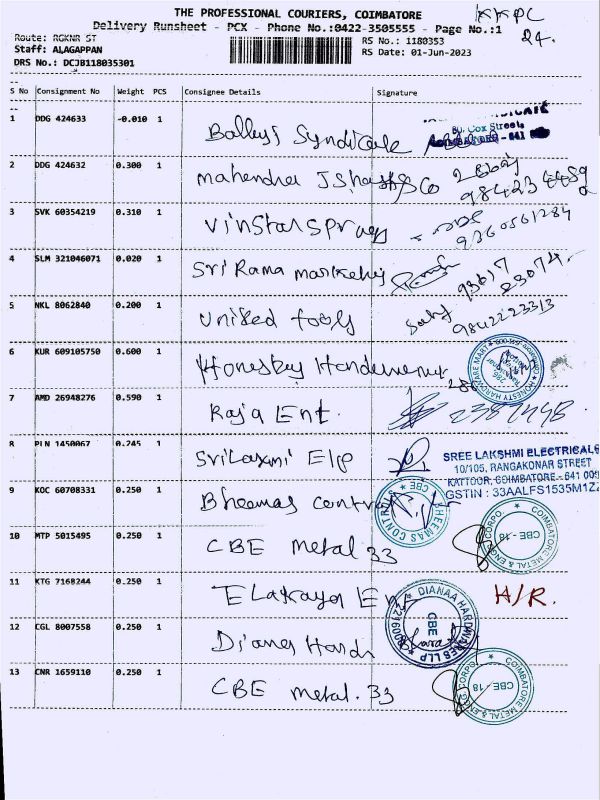 THE PROFESSIONAL COURIERS, COIMBATORE
KKPC
Delivery Runsheet - PCX - Phone No.:0422-3505555 - Page No.:1
24.
Route: RGKNR ST
RS No.: 1180353
Staff: ALAGAPPAN
RS Date: 01-Jun-2023
DRS No.: DCJB118035301
S No Consignment No Weight PCS Consignee Details Signature
1 DDG 424633 -0.010 1 Balleys Syndicate
80, Cox Street,
COIMBATORE - 641
2 DDG 424632 0.300 1 mahendra J Shastry Co
98423 4459
3 SVK 60354219 0.310 1 Vinstar Sprays
9360561284
4 SLM 321046071 0.020 1 Sri Rama marketing
93617 23074.
5 NKL 8062840 0.200 1 United tools
9842223313
6 KUR 609105750 0.600 1 Honestey Hardwemur
HONESTY HARDWARE MART
286
7 AMD 26948276 0.590 1 Raja Ent.
2387448
8 PLN 1450067 0.245 1 Sri Laxmi Elp
SREE LAKSHMI ELECTRICALS
10/105, RANGAKONAR STREET
KATTOOR, COIMBATORE - 641 009
GSTIN : 33AALFS1535M1Z
9 KOC 60708331 0.250 1 Bheemas contra
BHEEMAS CONTR
CBE
10 MTP 5015495 0.250 1 CBE metal 33
COIMBATORE METAL & ENGG CORPO
CBE-18
11 KTG 7168244 0.250 1 Elakaya Ent
H/R.
12 CGL 8007558 0.250 1 Diana Hards
DIANAA HARDWARES LLP
CBE
13 CNR 1659110 0.250 1 CBE metal. 33
COIMBATORE METAL & ENGG CORPO
CBE-18